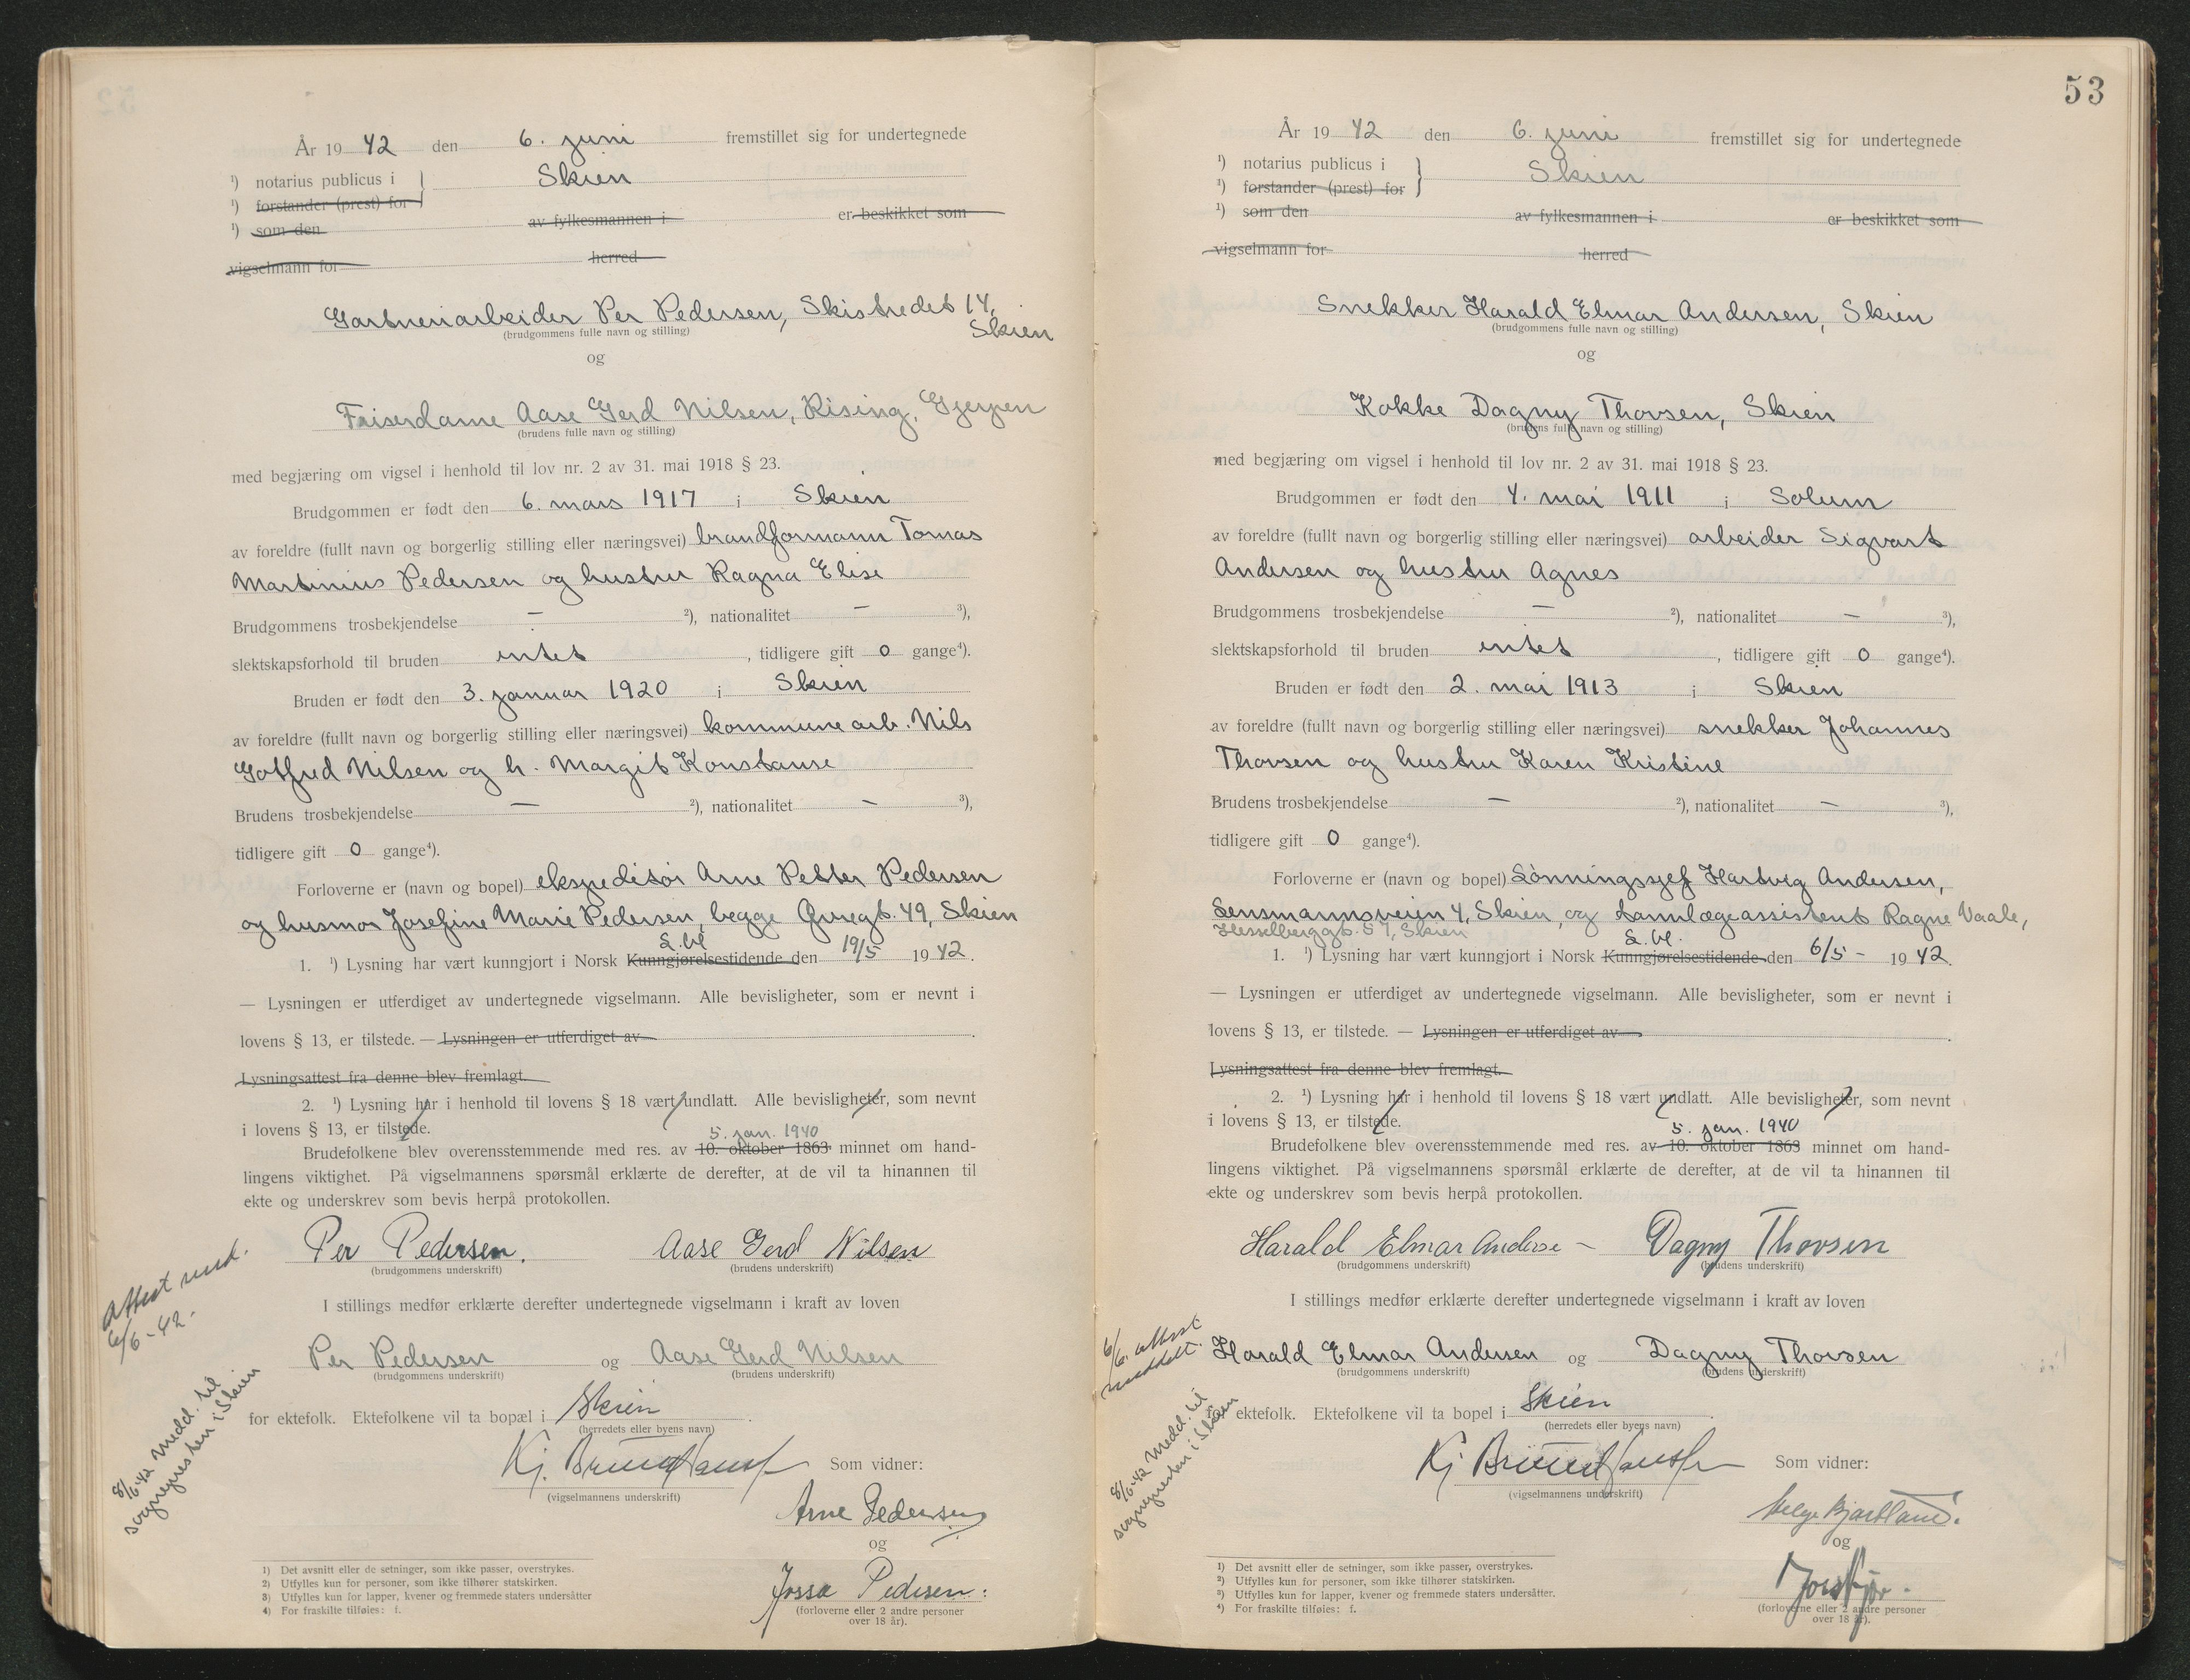 År 19 42 den 6. juni fremstillet sig for undertegnede
¹) notarius publicus i } Skien
¹) forstander (prest) for
¹) som den av fylkesmannen i er beskikket som
vigselmann for herred
Gartneriarbeider Per Pedersen, Skistredet 14,
Skien
(brudgommens fulle navn og stilling)
og
Friserdame Aase Gerd Nilsen, Rising, Gjerpen
(brudens fulle navn og stilling)
med begjæring om vigsel i henhold til lov nr. 2 av 31. mai 1918 § 23.
Brudgommen er født den 6. mars 1917 i Skien
av foreldre (fullt navn og borgerlig stilling eller næringsvei) brandformann Tomas
Martinius Pedersen og hustru Ragna Elise
Brudgommens trosbekjendelse — ²), nationalitet — ³),
slektskapsforhold til bruden intet, tidligere gift 0 gange⁴).
Bruden er født den 3. januar 1920 i Skien
av foreldre (fullt navn og borgerlig stilling eller næringsvei) kommunearb. Nils
Gotfred Nilsen og h. Margit Konstanse
Brudens trosbekjendelse — ²), nationalitet — ³),
tidligere gift 0 gange⁴).
Forloverne er (navn og bopel) ekspeditør Arne Petter Pedersen
og husmor Josefine Marie Pedersen, begge 49, Skien
L.bl
1. ¹) Lysning har vært kunngjort i Norsk Kunngjørelsestidende den 19/5 1942.
— Lysningen er utferdiget av undertegnede vigselmann. Alle bevisligheter, som er nevnt i
lovens § 13, er tilstede. — Lysningen er utferdiget av
Lysningsattest fra denne blev fremlagt.
2. ¹) Lysning har i henhold til lovens § 18 vært undlatt. Alle bevisligheter, som nevnt
i lovens § 13, er tilstede.
5. jan. 1940
Brudefolkene blev overensstemmende med res. av 10. oktober 1863 minnet om hand-
lingens viktighet. På vigselmannens spørsmål erklærte de derefter, at de vil ta hinannen til
ekte og underskrev som bevis herpå protokollen.
Per Pedersen. Aase Gerd Nilsen
(brudgommens underskrift) (brudens underskrift)
I stillings medfør erklærte derefter undertegnede vigselmann i kraft av loven
Attest medd.
6/6-42.
Per Pedersen og Aase Gerd Nilsen
(brudgommens underskrift) (brudens underskrift)
for ektefolk. Ektefolkene vil ta bopæl i Skien.
(herredets eller byens navn)
8/6-42 medd. til
sognepresten i Skien
Kj. Som vidner:
(vigselmannens underskrift)
Arne Pedersen
og
Jossa Pedersen.
(forloverne eller 2 andre personer
over 18 år).
1) Det avsnitt eller de setninger, som ikke passer, overstrykes.
2) Utfylles kun for personer, som ikke tilhører statskirken.
3) Utfylles kun for lapper, kvener og fremmede staters undersåtter
4) For fraskilte tilføies: f.
53
År 19 42 den 6. juni fremstillet sig for undertegnede
¹) notarius publicus i } Skien
¹) forstander (prest) for
¹) som den av fylkesmannen i er beskikket som
vigselmann for herred
Snekker Harald Elmar Andersen, Skien
(brudgommens fulle navn og stilling)
og
Kokke Dagny Thovsen, Skien
(brudens fulle navn og stilling)
med begjæring om vigsel i henhold til lov nr. 2 av 31. mai 1918 § 23.
Brudgommen er født den 4. mai 1911 i Solum
av foreldre (fullt navn og borgerlig stilling eller næringsvei) arbeider Sigvart
Andersen og hustru Agnes
Brudgommens trosbekjendelse — ²), nationalitet — ³),
slektskapsforhold til bruden intet, tidligere gift 0 gange⁴).
Bruden er født den 2. mai 1913 i Skien
av foreldre (fullt navn og borgerlig stilling eller næringsvei) snekker Johannes
Thovsen og hustru Karen Kristine
Brudens trosbekjendelse — ²), nationalitet — ³),
tidligere gift 0 gange⁴).
Forloverne er (navn og bopel) Lønningssjef Hartvig Andersen,
Lensmannsveien 4, Skien, og tannlægeassistent Ragne Vaale,
Hesselberggt. 57, Skien
L.bl.
1. ¹) Lysning har vært kunngjort i Norsk Kunngjørelsestidende den 6/5 - 1942.
— Lysningen er utferdiget av undertegnede vigselmann. Alle bevisligheter, som er nevnt i
lovens § 13, er tilstede. — Lysningen er utferdiget av
Lysningsattest fra denne blev fremlagt.
2. ¹) Lysning har i henhold til lovens § 18 vært undlatt. Alle bevisligheter, som nevnt
i lovens § 13, er tilstede.
5. jan. 1940
Brudefolkene blev overensstemmende med res. av 10. oktober 1863 minnet om hand-
lingens viktighet. På vigselmannens spørsmål erklærte de derefter, at de vil ta hinannen til
ekte og underskrev som bevis herpå protokollen.
Harald Elmar Andersen Dagny Thovsen
(brudgommens underskrift) (brudens underskrift)
I stillings medfør erklærte derefter undertegnede vigselmann i kraft av loven
6/6. attest
meddelt.
Harald Elmar Andersen og Dagny Thovsen
(brudgommens underskrift) (brudens underskrift)
for ektefolk. Ektefolkene vil ta bopel i Skien.
(herredets eller byens navn)
8/6-42 medd. til
sognepresten i Skien
Kj Som vidner:
(vigselmannens underskrift)
Helge
og
(forloverne eller 2 andre personer
over 18 år).
1) Det avsnitt eller de setninger, som ikke passer, overstrykes.
2) Utfylles kun for personer, som ikke tilhører statskirken.
3) Utfylles kun for lapper, kvener og fremmede staters undersåtter.
4) For fraskilte tilføies: f.